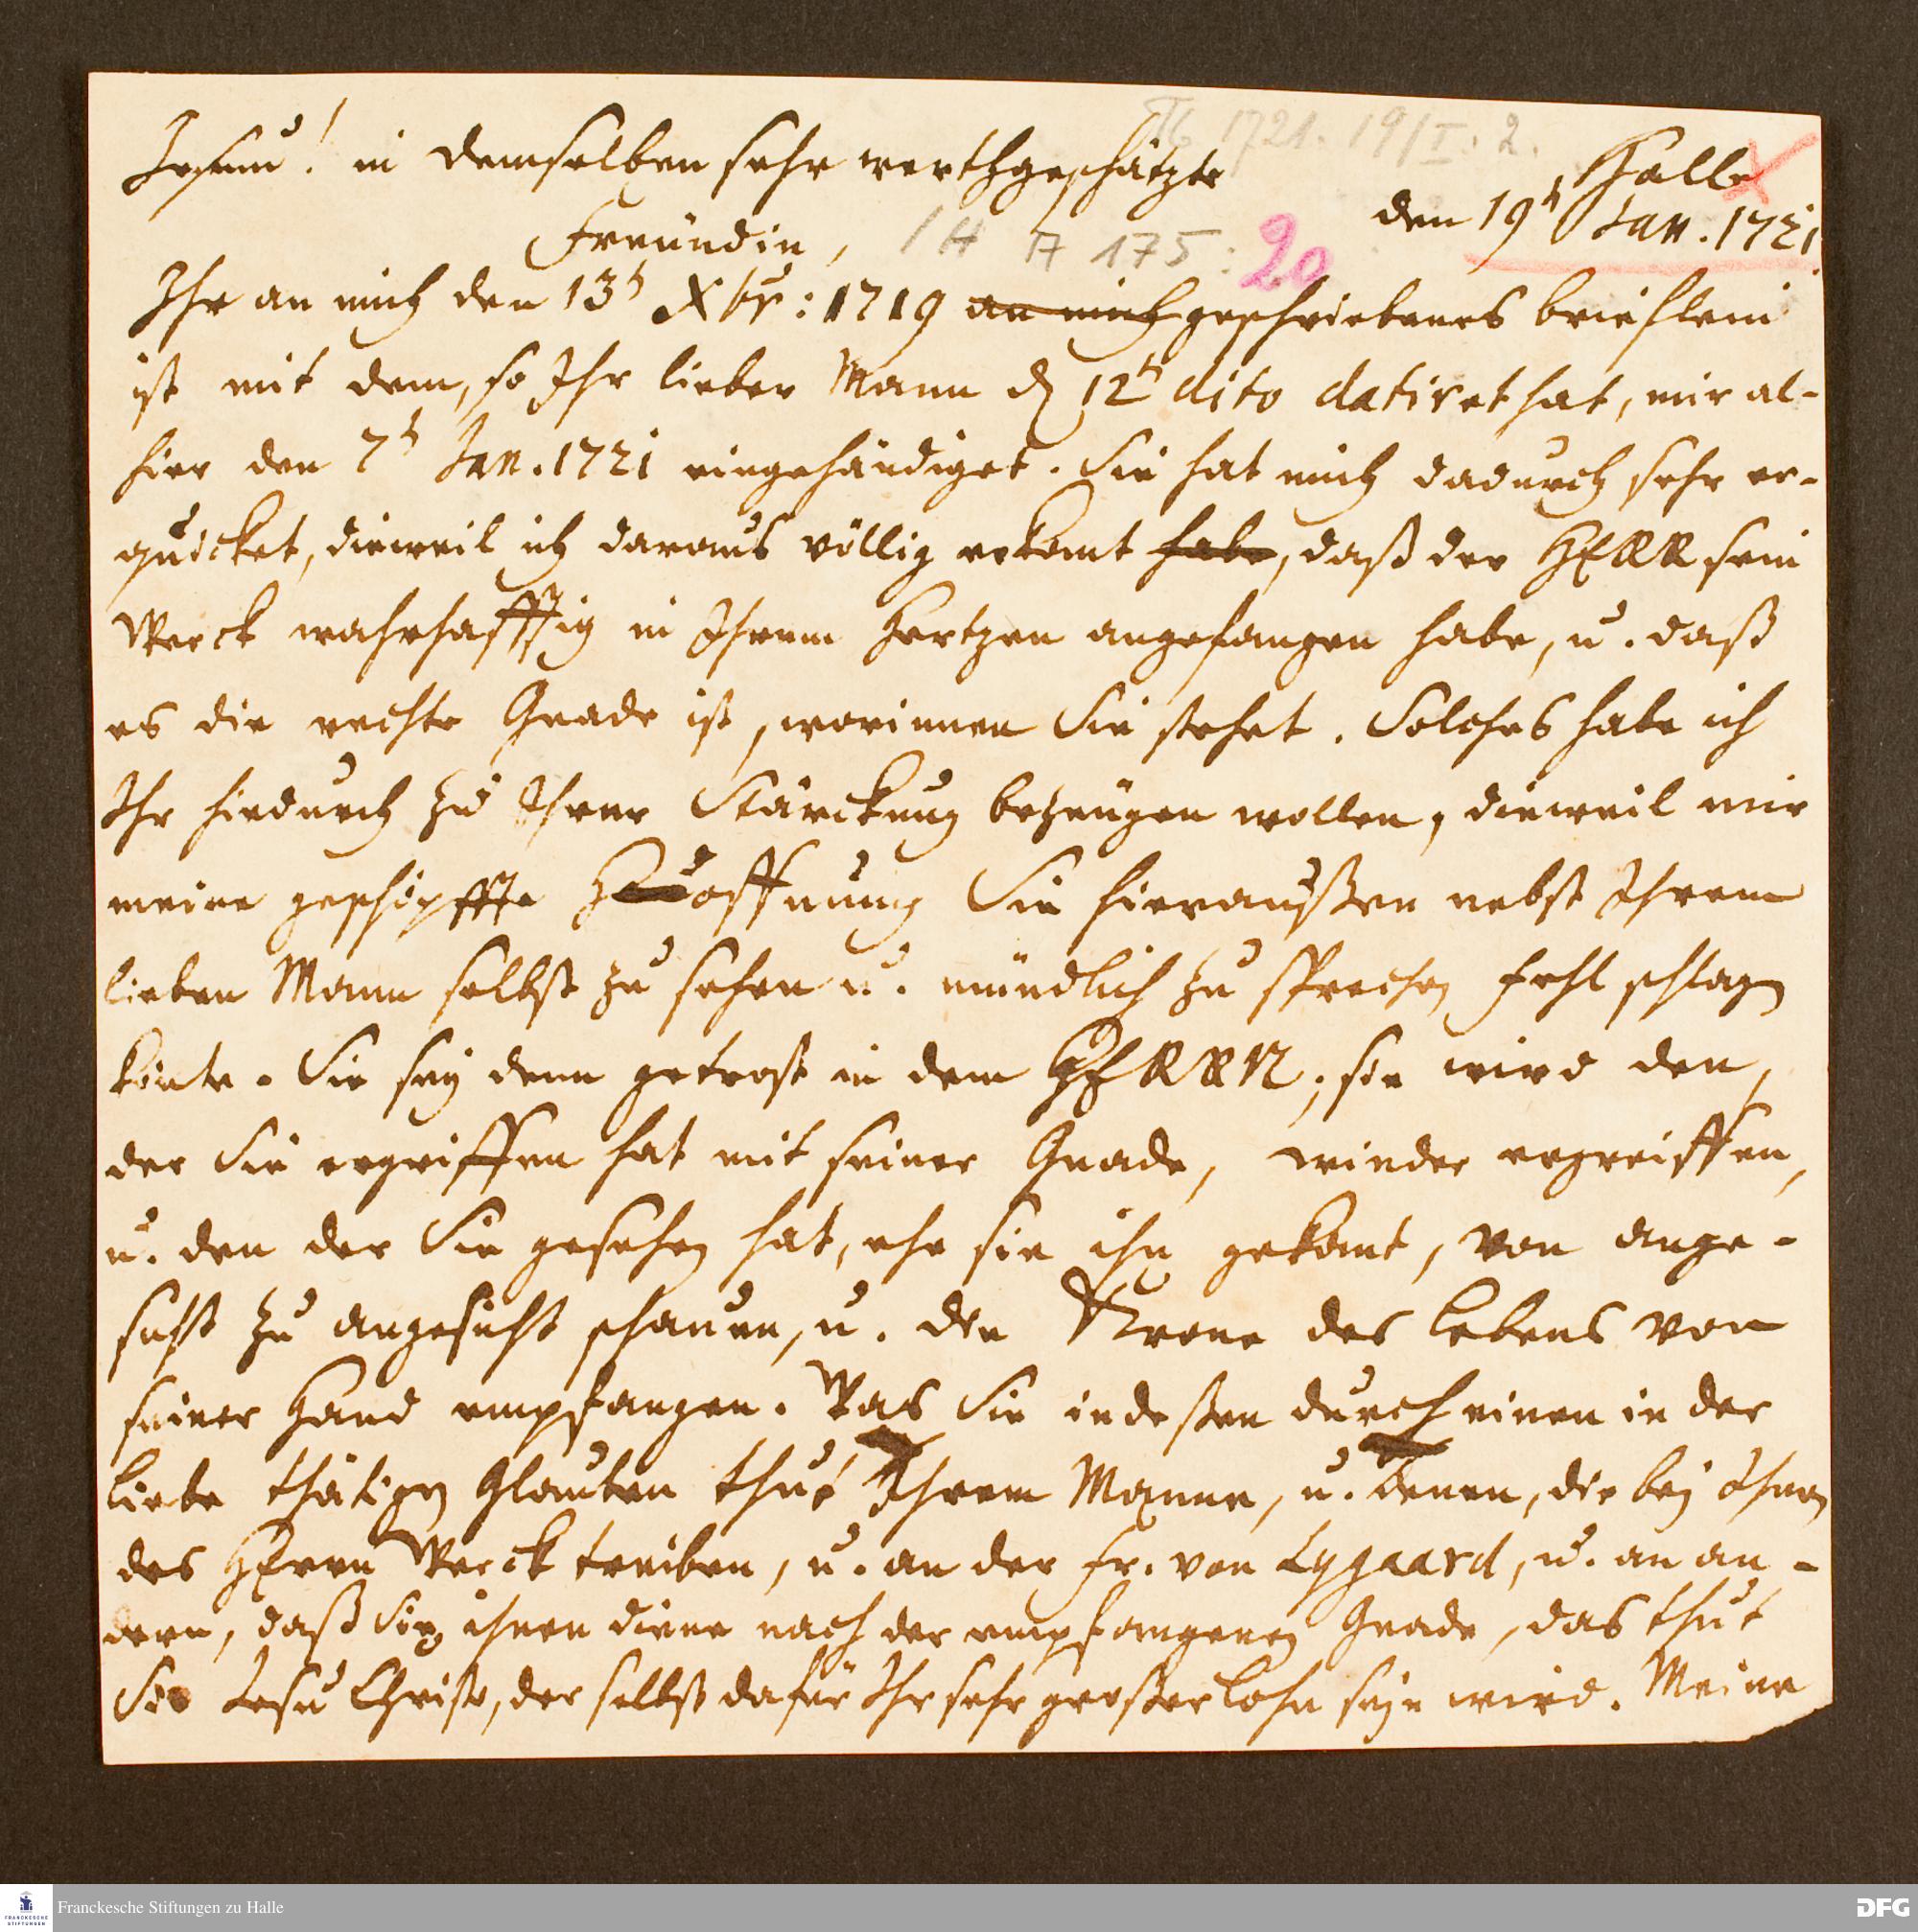 Tb 1721. 19/I. 2.
Jesum! in demselben sehr werthgeschätzte
Halle
den 19t Jan. 1721.
Freündin,
1 H A 175: 20
Ihr an mich den 13t Xbr: 1719 an mich geschriebenes brieflein
ist mit dem, so Ihr lieber Mann d 12t dito datiret hat, mir al-
hier den 7t Jan. 1721 eingehändiget. Sie hat mich dadurch sehr er-
quicket, dieweil ich daraus völlig erkant habe, daß der HERR sein
Werck wahrhafftig in Ihrem Hertzen angefangen habe, u. daß
es die rechte Gnade ist, worinnen Sie stehet. Solches habe ich
Ihr hiedurch zu Ihrer Stärckung bezeugen wollen, dieweil mir
meine geschöpffte Hoffnung Sie hieraußen nebst Ihrem
lieben Mann selbst zu sehen u. mündlich zu sprechen fehl schlagen
könte. Sie sey denn getrost in dem HERRN; sie wird den,
der Sie ergriffen hat mit seiner Gnade, wieder ergreiffen,
u. den der Sie gesehen hat, ehe sie ihn gekant, von ange-
sicht zu angesicht schauen, u. die Krone des Lebens von
seiner Hand empfangen. Was Sie indeßen durch einen in der
Liebe thätigen Glauben thut Ihrem Manne, u. denen, die bey Ihnen
des HErrn Werck treiben, u. an der Fr. von Lygaard, u. an an-
dern, daß Sie ihnen diene nach der empfangenen Gnade, das thut
Sie Jesu Christo, der selbst dafür Ihr sehr großer Lohn seyn wird. Meine
Franckesche Stiftungen zu Halle
FRANCKESCHE STIFTUNGEN
DFG